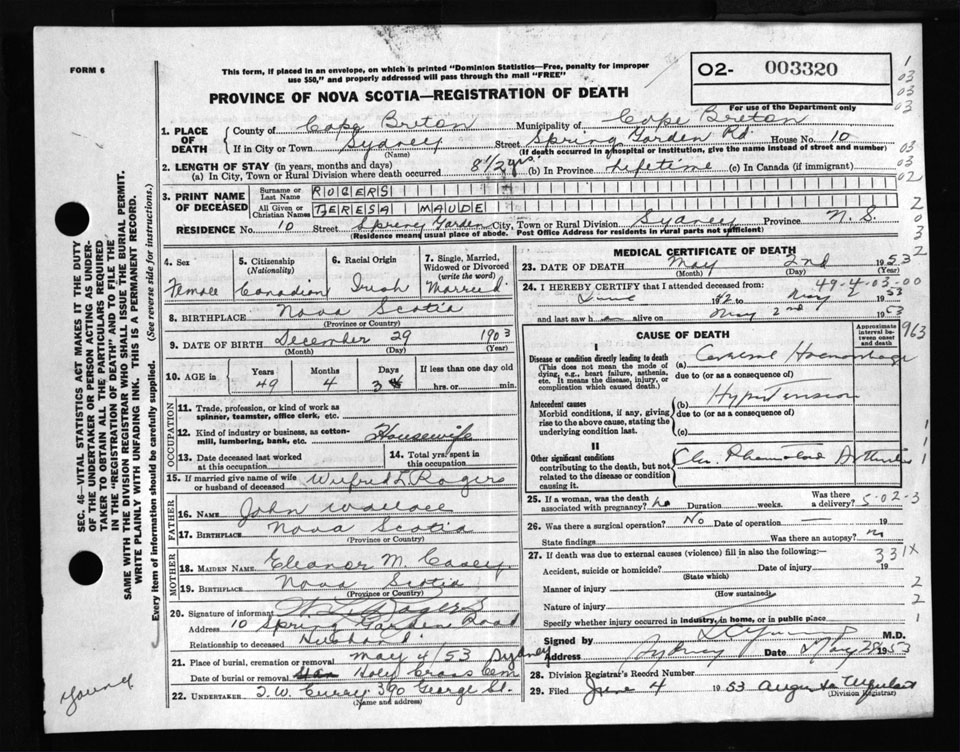 FORM 6
This form, if placed in an envelope, on which is printed "Dominion Statistics—Free, penalty for improper
use $50," and properly addressed will pass through the mail "FREE"
02- 003320
For use of the Department only
PROVINCE OF NOVA SCOTIA—REGISTRATION OF DEATH
1. PLACE OF DEATH
County of Cape Breton Municipality of Cape Breton
If in City or Town Sydney Street Spring Garden Rd. House No. 10
(Name) (If death occurred in a hospital or institution, give the name instead of street and number)
2. LENGTH OF STAY (in years, months and days)
(a) In City, Town or Rural Division where death occurred 8 1/2 yrs. (b) In Province Lifetime (c) In Canada (if immigrant)
3. PRINT NAME OF DECEASED
Surname or Last Name ROGERS
All Given or Christian Names TERESA MAUDE
RESIDENCE No. 10 Street Spring Garden City, Town or Rural Division Sydney Province N. S.
(Residence means usual place of abode. Post Office Address for residents in rural parts not sufficient)
4. Sex
Female
5. Citizenship (Nationality)
Canadian
6. Racial Origin
Irish
7. Single, Married, Widowed or Divorced (write the word)
Married
8. BIRTHPLACE Nova Scotia
(Province or Country)
9. DATE OF BIRTH December 29 1903
(Month) (Day) (Year)
10. AGE in Years Months Days If less than one day old
49 4 3 hrs. or min.
OCCUPATION
11. Trade, profession, or kind of work as
spinner, teamster, office clerk, etc.
12. Kind of industry or business, as cotton-
mill, lumbering, bank, etc. Housewife
13. Date deceased last worked at this occupation
14. Total yrs. spent in this occupation
15. If married give name of wife
or husband of deceased Wilfred L. Rogers
FATHER
16. NAME John Wallace
17. BIRTHPLACE Nova Scotia
(Province or Country)
MOTHER
18. MAIDEN NAME Eleanor M. Casey
19. BIRTHPLACE Nova Scotia
(Province or Country)
20. Signature of informant W L Rogers
Address 10 Spring Garden Road
Relationship to deceased Husband
21. Place of burial, cremation or removal May 4/53 Sydney
Date of burial or removal Holy Cross Cem
22. UNDERTAKER T. W. Curry 390 George St.
(Name and address)
MEDICAL CERTIFICATE OF DEATH
23. DATE OF DEATH May 2nd 1953
(Month) (Day) (Year)
49-4-03-00
24. I HEREBY CERTIFY that I attended deceased from:
June 1942 to May 2 1953
and last saw h alive on May 2nd 1953
CAUSE OF DEATH
Approximate interval between onset and death
963
I
Disease or condition directly leading to death
(This does not mean the mode of
dying, e.g., heart failure, asthenia,
etc. It means the disease, injury, or
complication which caused death.)
(a) Cerebral Haemorrhage
due to (or as consequence of)
Antecedent causes
Morbid conditions, if any, giving
rise to the above cause, stating the
underlying condition last.
(b) Hypertension
due to (or as consequence of)
(c)
II
Other significant conditions
contributing to the death, but not
related to the disease or condition
causing it.
Arthritis
25. If a woman, was the death
associated with pregnancy? no Duration weeks. Was there a delivery? 5-02-3
26. Was there a surgical operation? No Date of operation — 19
State findings Was there an autopsy? no
27. If death was due to external causes (violence) fill in also the following:— 331X
Accident, suicide or homicide? Date of injury 19
(State which)
Manner of injury
(How sustained)
Nature of injury
Specify whether injury occurred in industry, in home, or in public place
Signed by M.D.
Address Sydney Date May 28 1953
28. Division Registrar's Record Number
29. Filed June 4 1953 Augusta Urquhart
(Division Registrar)
SEC. 46—VITAL STATISTICS ACT MAKES IT THE DUTY
OF THE UNDERTAKER OR PERSON ACTING AS UNDER-
TAKER TO OBTAIN ALL THE PARTICULARS REQUIRED
IN THE "REGISTRATION OF DEATH" AND TO FILE THE
SAME WITH THE DIVISION REGISTRAR WHO SHALL ISSUE THE BURIAL PERMIT.
WRITE PLAINLY WITH UNFADING INK. THIS IS A PERMANENT RECORD.
Every item of information should be carefully supplied. (See reverse side for instructions.)
Young
1
03
03
03
03
03
02
2
0
3
2
1
1
1
2
2
1